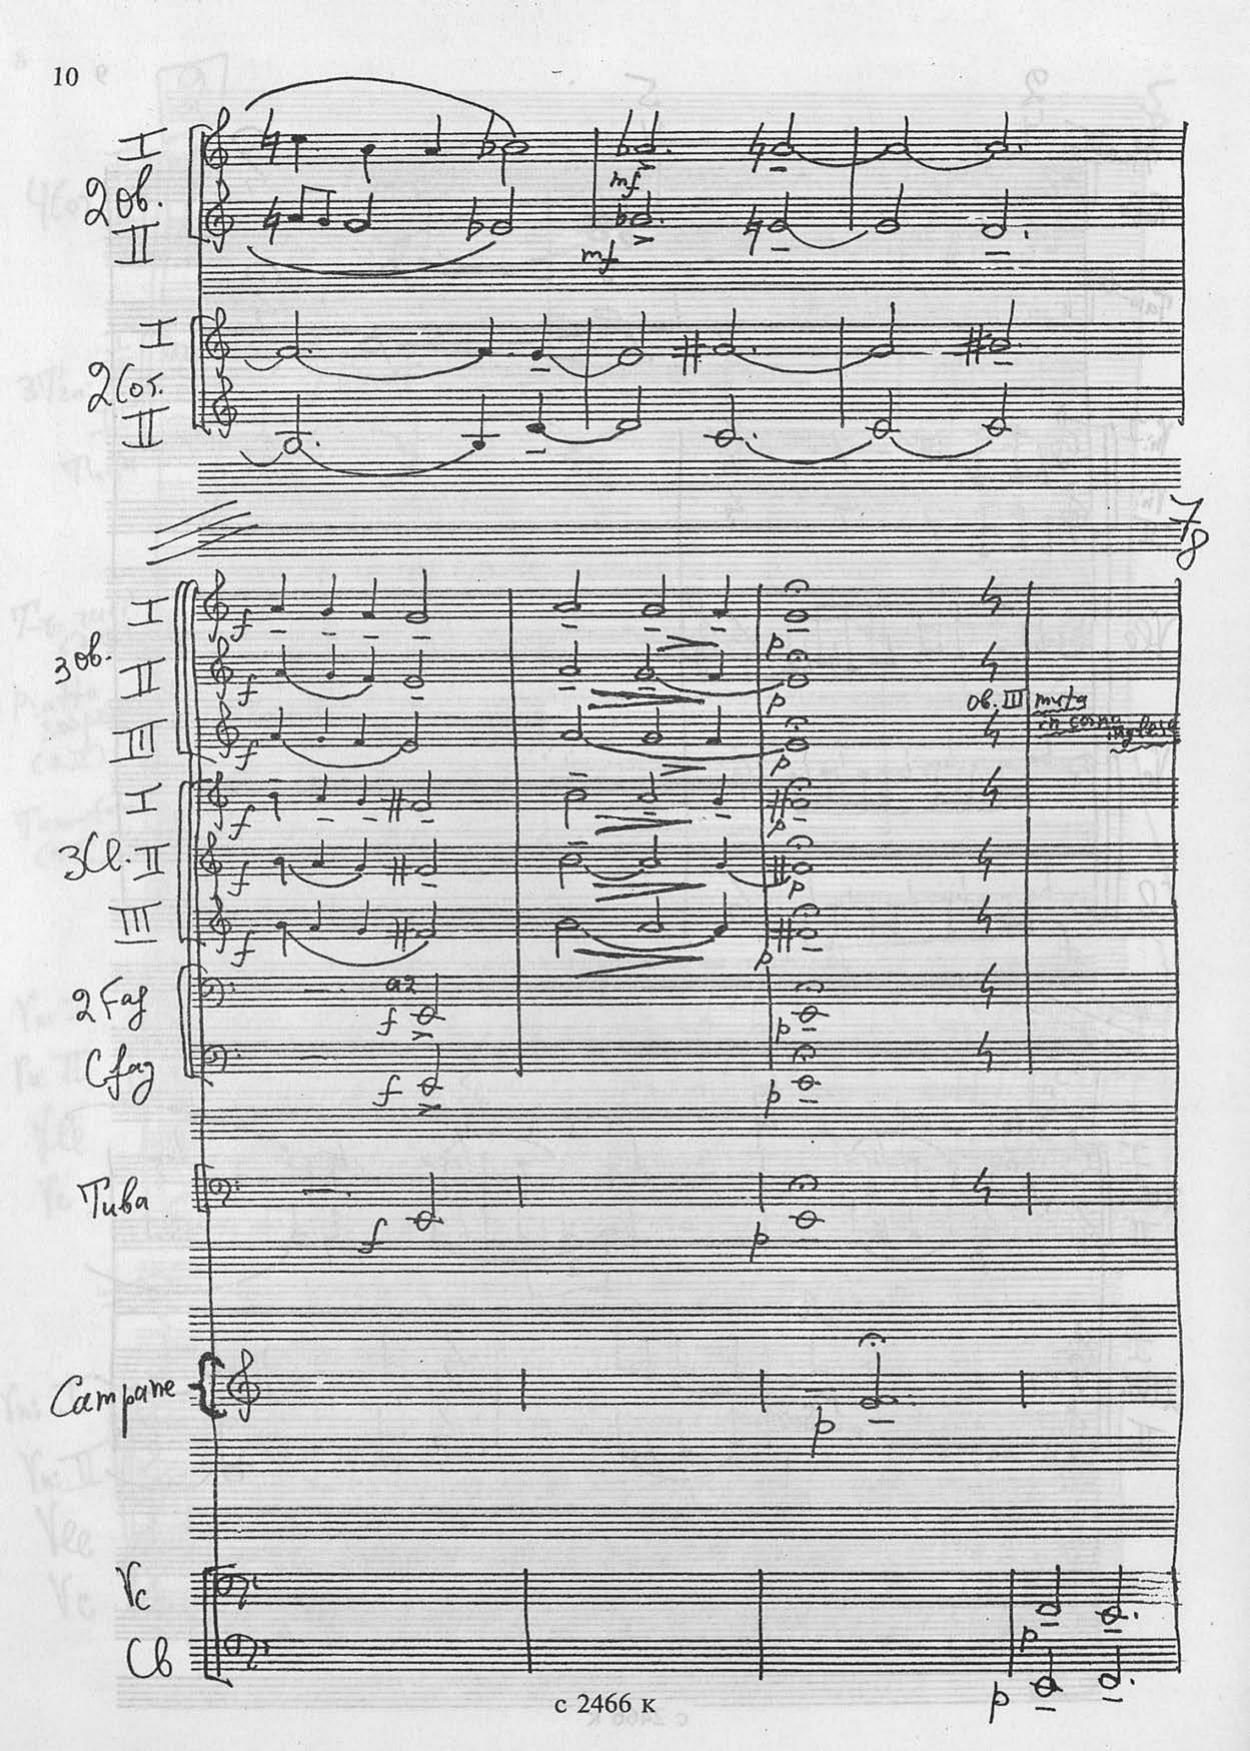 10
I
2 ob.
II
mf
mf
I
2 Cor.
II
7/8
I
3 ob.
II
III
f
f
f
p
p
p
ob. III muta
in corno
inglese
I
3 Cl. II
III
f
f
f
p
p
p
2 Fag
a2
f
p
Cfag
f
p
Tuba
f
p
Campane
p
Vc
p
Cb
p
с 2466 к